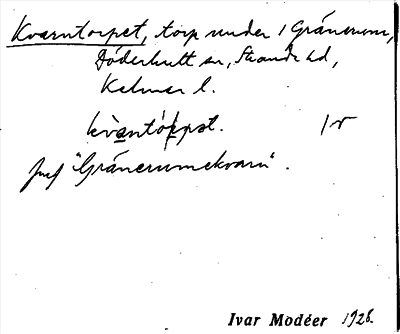 Kvarntorpet, torp under 1 Gränerum,
Döderhult sn, Stranda hd,
Kalmar l.
kvàntórpət. 1 r
Jmf "Gränerumekvarn".
Ivar Modéer 1928.